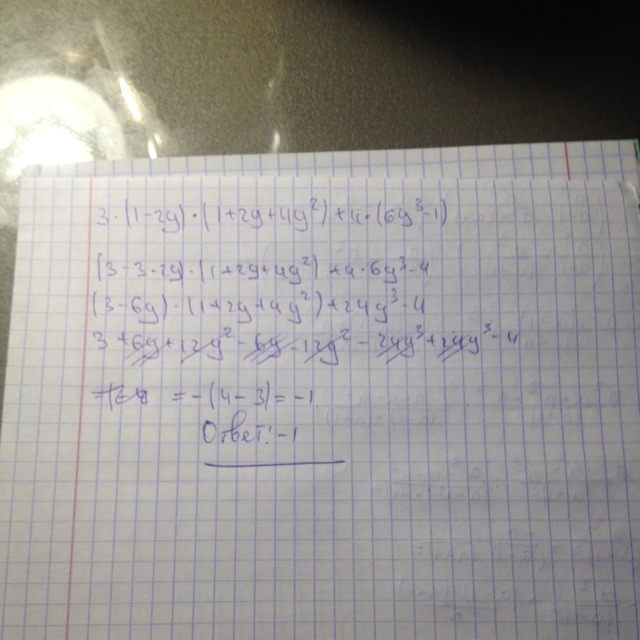 3·(1-2y)·(1+2y+4y²)+4·(6y³-1)
(3-3·2y)·(1+2y+4y²)+4·6y³-4
(3-6y)·(1+2y+4y²)+24y³-4
3+6y+12y²-6y-12y²-24y³+24y³-4
= -(4-3)=-1
Ответ:-1